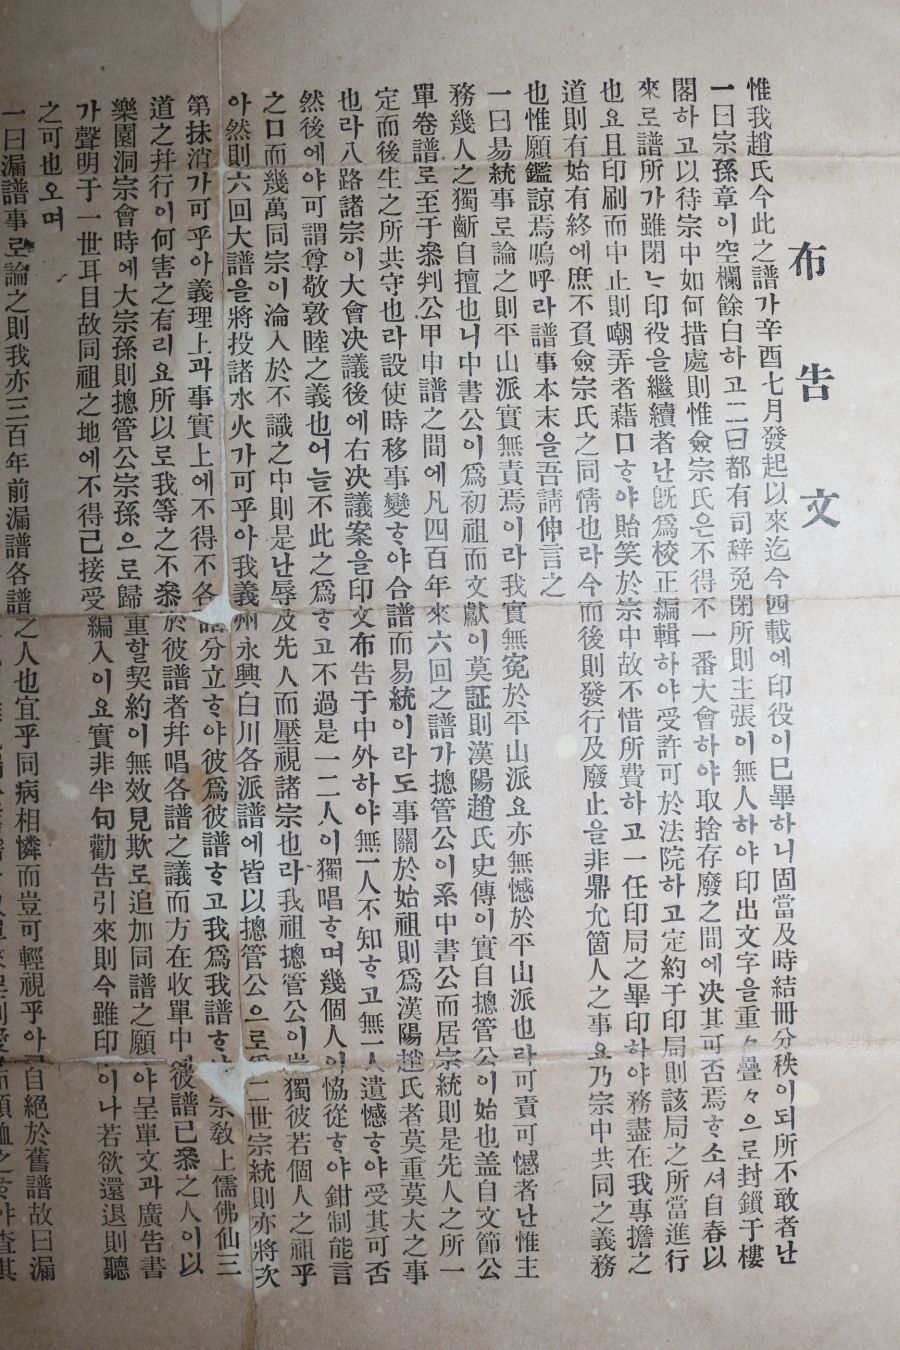 布告文
惟我趙氏今此之譜가辛酉七月發起以來迄今四載에印役이已畢하니固當及時結冊分秩이되所不敢者난
一曰宗孫章이空欄餘白하고二曰都有司辭免閉所則主張이無人하야印出文字을重々疊々으로封鎖于樓
閣하고以待宗中如何措處則惟僉宗氏은不得不一番大會하야取捨存廢之間에决其可否焉ᄒᆞ소셔自春以
來로譜所가雖閉는印役을繼續者난旣爲校正編輯하야受許可於法院하고定約于印局則該局之所當進行
也요且印刷而中止則嘲弄者藉口ᄒᆞ야貽笑於宗中故不惜所費하고一任印局之畢印하야務盡在我專擔之
道則有始有終에庶不負僉宗氏之同情也라今而後則發行及廢止을非鼎允箇人之事요乃宗中共同之義務
也惟願鑑諒焉嗚呼라譜事本末을吾請伸言之
一曰易統事로論之則平山派實無責焉이라我實無寃於平山派요亦無憾於平山派也라可責可憾者난惟主
務幾人之獨斷自擅也니中書公이爲初祖而文獻이莫証則漢陽趙氏史傳이實自摠管公이始也盖自文節公
單卷譜로至于叅判公甲申譜之間에凡四百年來六回之譜가摠管公이系中書公而居宗統則是先人之所一
定而後生之所共守也라設使時移事變ᄒᆞ야合譜而易統이라도事關於始祖則爲漢陽趙氏者莫重莫大之事
也라八路諸宗이大會决議後에右决議案을印文布告于中外하야無一人不知ᄒᆞ고無一人遺憾ᄒᆞ야受其可否
然後에야可謂尊敬敦睦之義也어늘不此之爲ᄒᆞ고不過是一二人이獨唱ᄒᆞ며幾個人이恊從ᄒᆞ야鉗制能言
之口而幾萬同宗이淪入於不識之中則是난辱及先人而壓視諸宗也라我祖摠管公이豈獨彼若個人之祖乎
아然則六回大譜을將投諸水火가可乎아我義州永興白川各派譜에皆以摠管公으로爲二世宗統則亦將次
第抹消가可乎아義理上과事實上에不得不各譜分立ᄒᆞ야彼爲彼譜ᄒᆞ고我爲我譜ᄒᆞ야宗敎上儒佛仙三
道之幷行이何害之有리요所以로我等之不叅於彼譜者幷唱各譜之議而方在收單中彼譜已叅之人이以
樂園洞宗會時에大宗孫則摠管公宗孫으로歸重할契約이無效見欺로追加同譜之願야呈單文과廣告書
가聲明于一世耳目故同祖之地에不得已接受編入이요實非半句勸告引來則今雖印이나若欲還退則聽
之可也오며
一曰漏譜事로論之則我亦三百年前漏譜各譜之人也宜乎同病相憐而豈可輕視乎아自絕於舊譜故曰漏